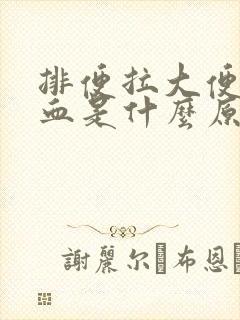 排便拉大便
血是什麼原
謝麗尔·布恩